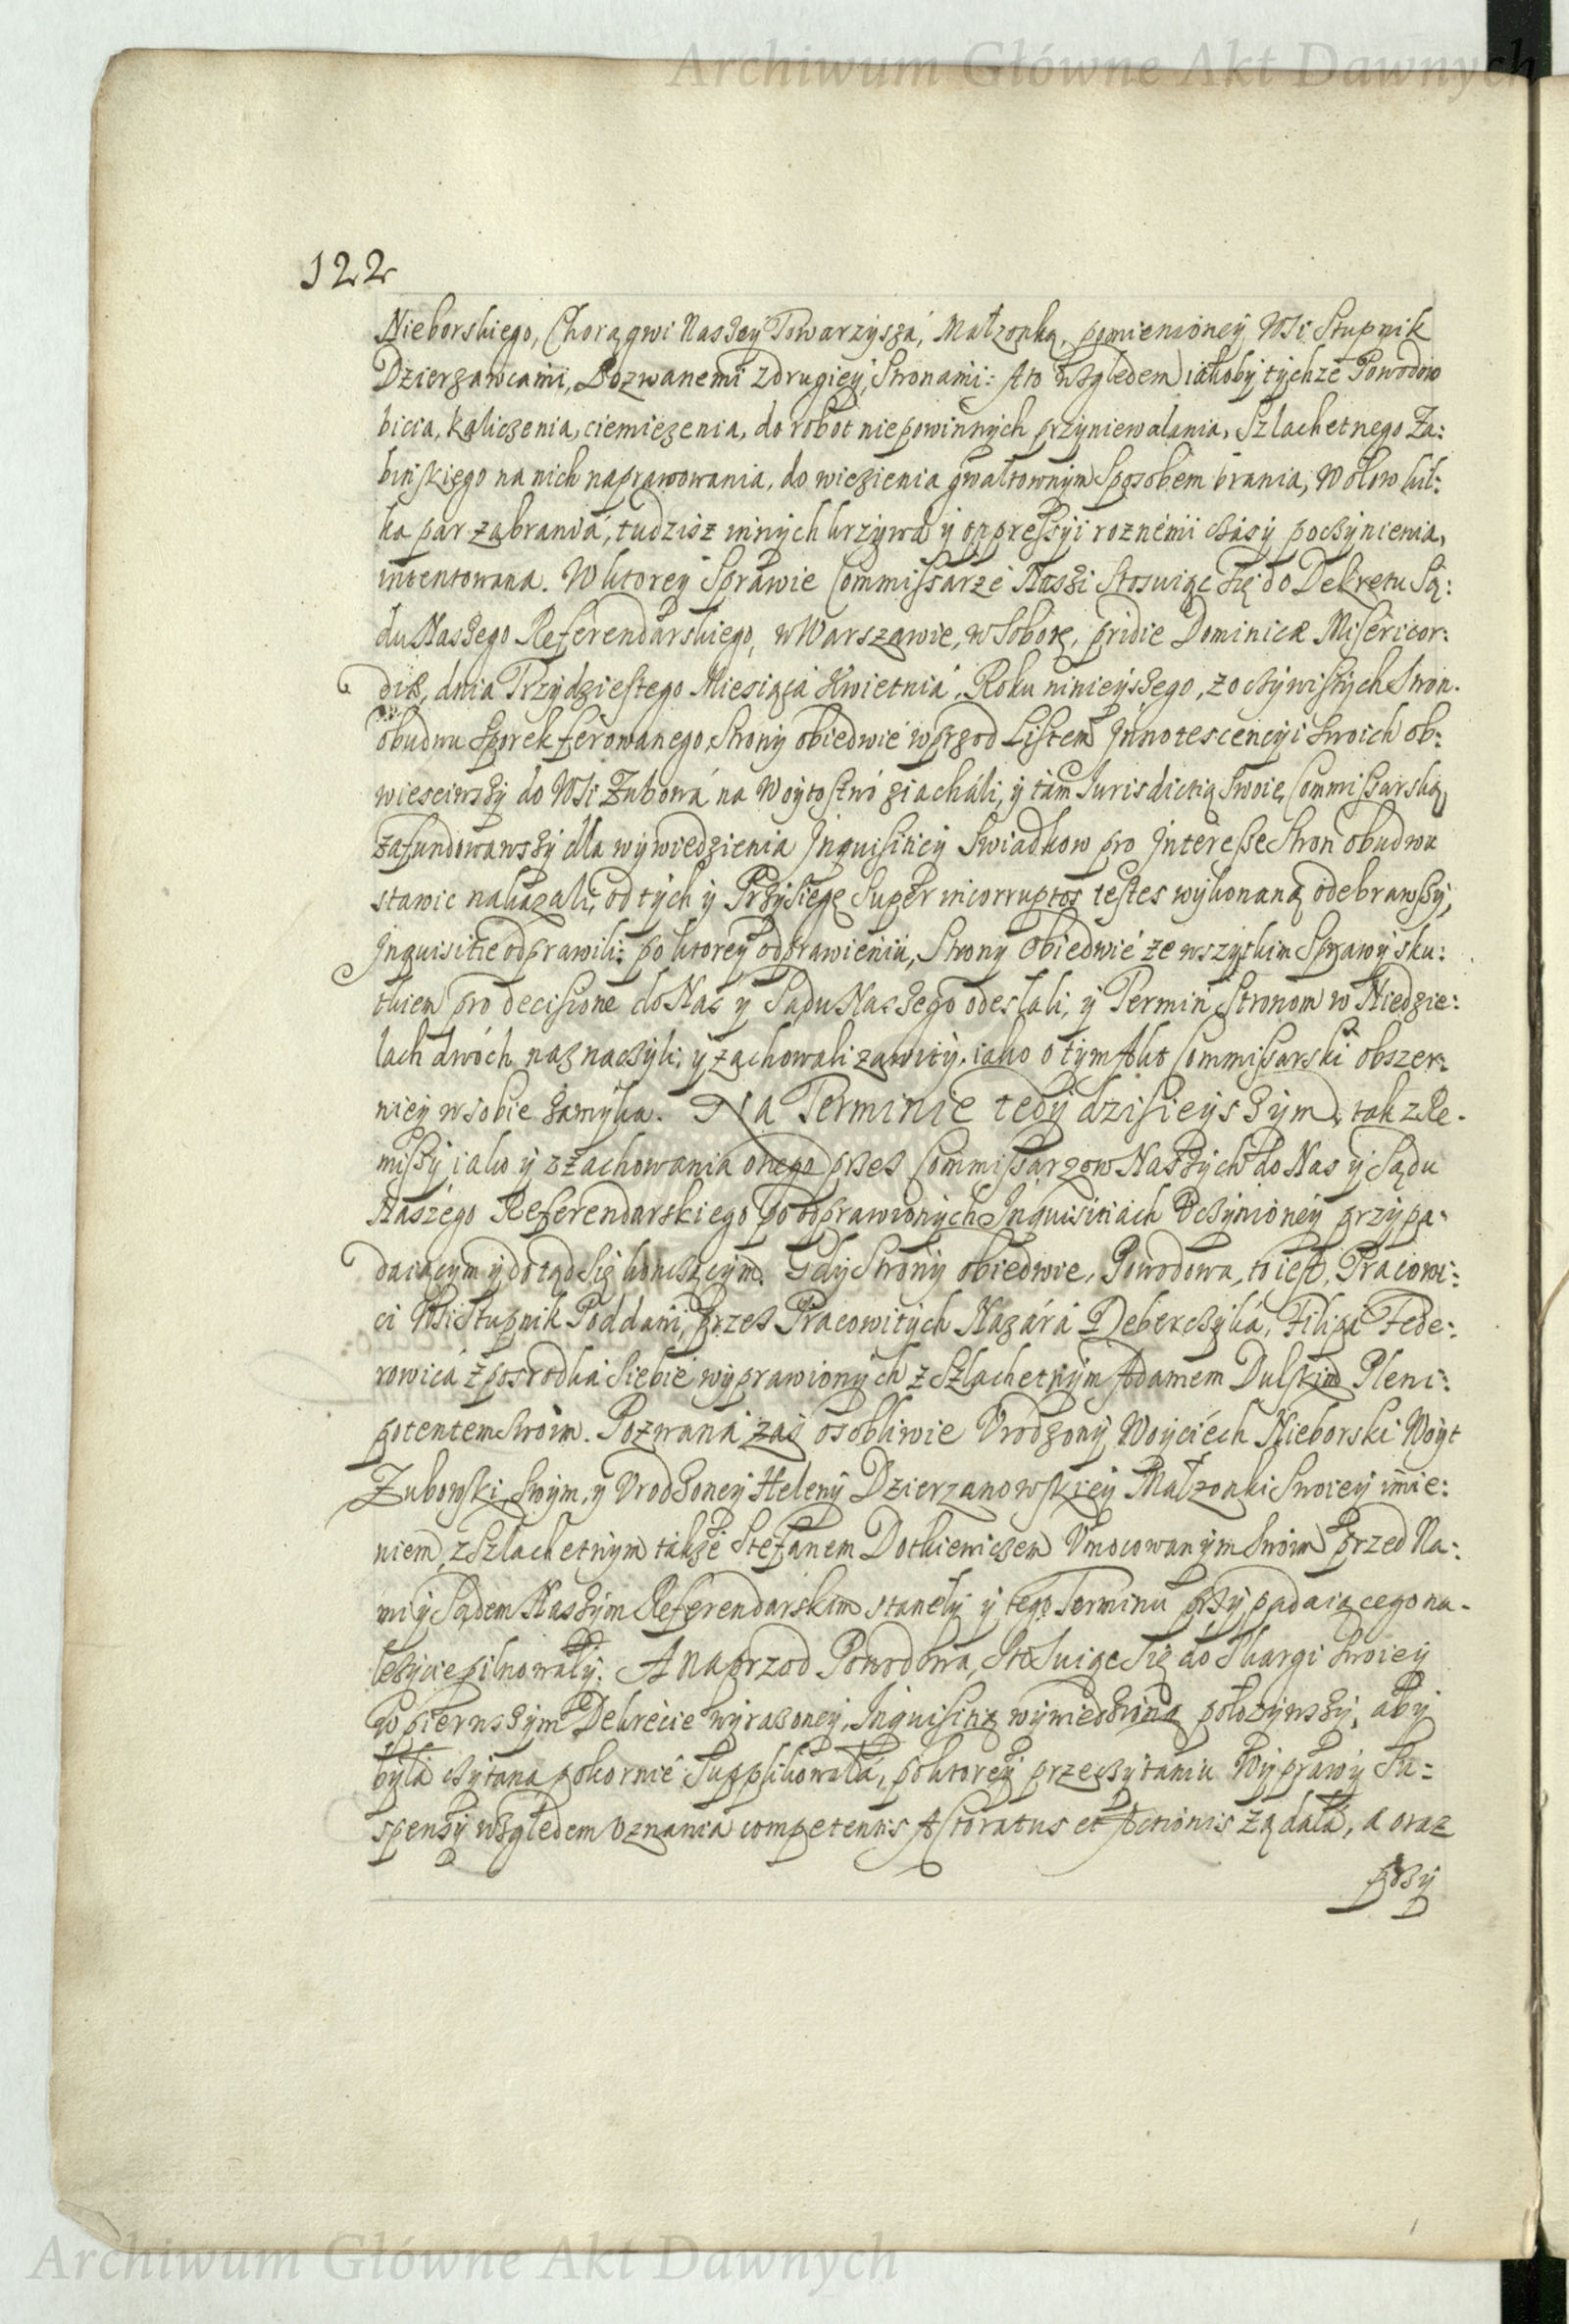 Archiwum Główne Akt Dawnych
122
Nieborskiego, Chorągwi Naszey Towarzysza, Małzonką, pomienioney Wsi Stupnik
Dzierzawcami, Pozwanemi z drugiey, Stronami: A to względem iakoby tychze Powodow
bicia, kaliczenia, ciemięzenia, do robot niepowinnych przyniewalania, Szlachetnego Za:
binskiego na nich naprawowania, do więzienia gwałtownym Sposobem brania, Wołow kil:
ka par zabrania, tudzisz innych krzywd y oppressyi roznemi czasy poczynienia,
intentowana. W ktorey Sprawie Commissarze Naszi Stosuiąc się do Dekretu Są:
du Naszego Referendarskiego, w Warszawie, w Sobotę, pridie Dominicæ Misericor:
diæ, dnia Trzydziestego Miesiąca Kwietnia, Roku ninieyszego, z oczywistych Stron
obudwu Sporek ferowanego, Strony obiedwie wprzod Listem Innotescencyi swoich ob:
wiesciwszy do Wsi Zubowa na Woytostwo ziachali, y tam Jurisdictią Swoię Commissarską
zafundowawszy dla wywiedzienia Inquisitiey Swiadkow pro Interesse Stron obudwu
stawic nakazali, od tych y Przysięgę Super incorruptos testes wykonaną odebrawszy,
Inquisitie odprawili: po ktorey odprawieniu, Strony obiedwie ze wszytkim Sprawy sku:
tkiem pro decisione do Nas y Sądu Naszego odesłali, y Termin Stronom w Niedzie:
lach dwoch naznaczyli, y zachowali zawity, iako o tym Akt Commissarski obszer:
niey w sobie zamyka. Na Terminie tedy dzisieyszym, tak z Re:
missy iako y z zachowania onego przez Commissarzow Naszych do Nas y Sądu
Naszego Referendarskiego po odprawionych Inquisitiach Uczynioney przypa:
daiącym y dotąd się kończącym. Gdy Strony obiedwie, Powodowa, to iest, Pracowi:
ci Wsi Stupnik Poddani, przez Pracowitych Nazara Deberczyka, Filipa Fede:
rowica z posrodka siebie wyprawionych z Szlachetnym Adamem Dulskim Pleni:
potentem Swoim. Pozwana zaś osobliwie Urodzony Woyciech Nieborski Woyt
Zubowski, Swym, y Urodzoney Heleny Dzierzanowskiey Małzonki Swoiey imie:
niem, z Szlachetnym takze Stefanem Dotkiewiczem Umocowanym Swoim przed Na:
mi y Sądem Naszym Referendarskim stanęły y tego Terminu przypadaiącego na:
lezycie pilnowały. A naprzod Powodowa, Stosuiąc się do Skargi Swoiey
w pierwszym Dekrecie wyrazoney, Inquisitią wywiedzioną połozywszy, aby
była czytana pokornie Supplikowała, po ktorey przeczytaniu Wyprawy Su:
spensy względem Uznania competentis Actoratus et Actionis ządała, a oraz
przy
Archiwum Główne Akt Dawnych